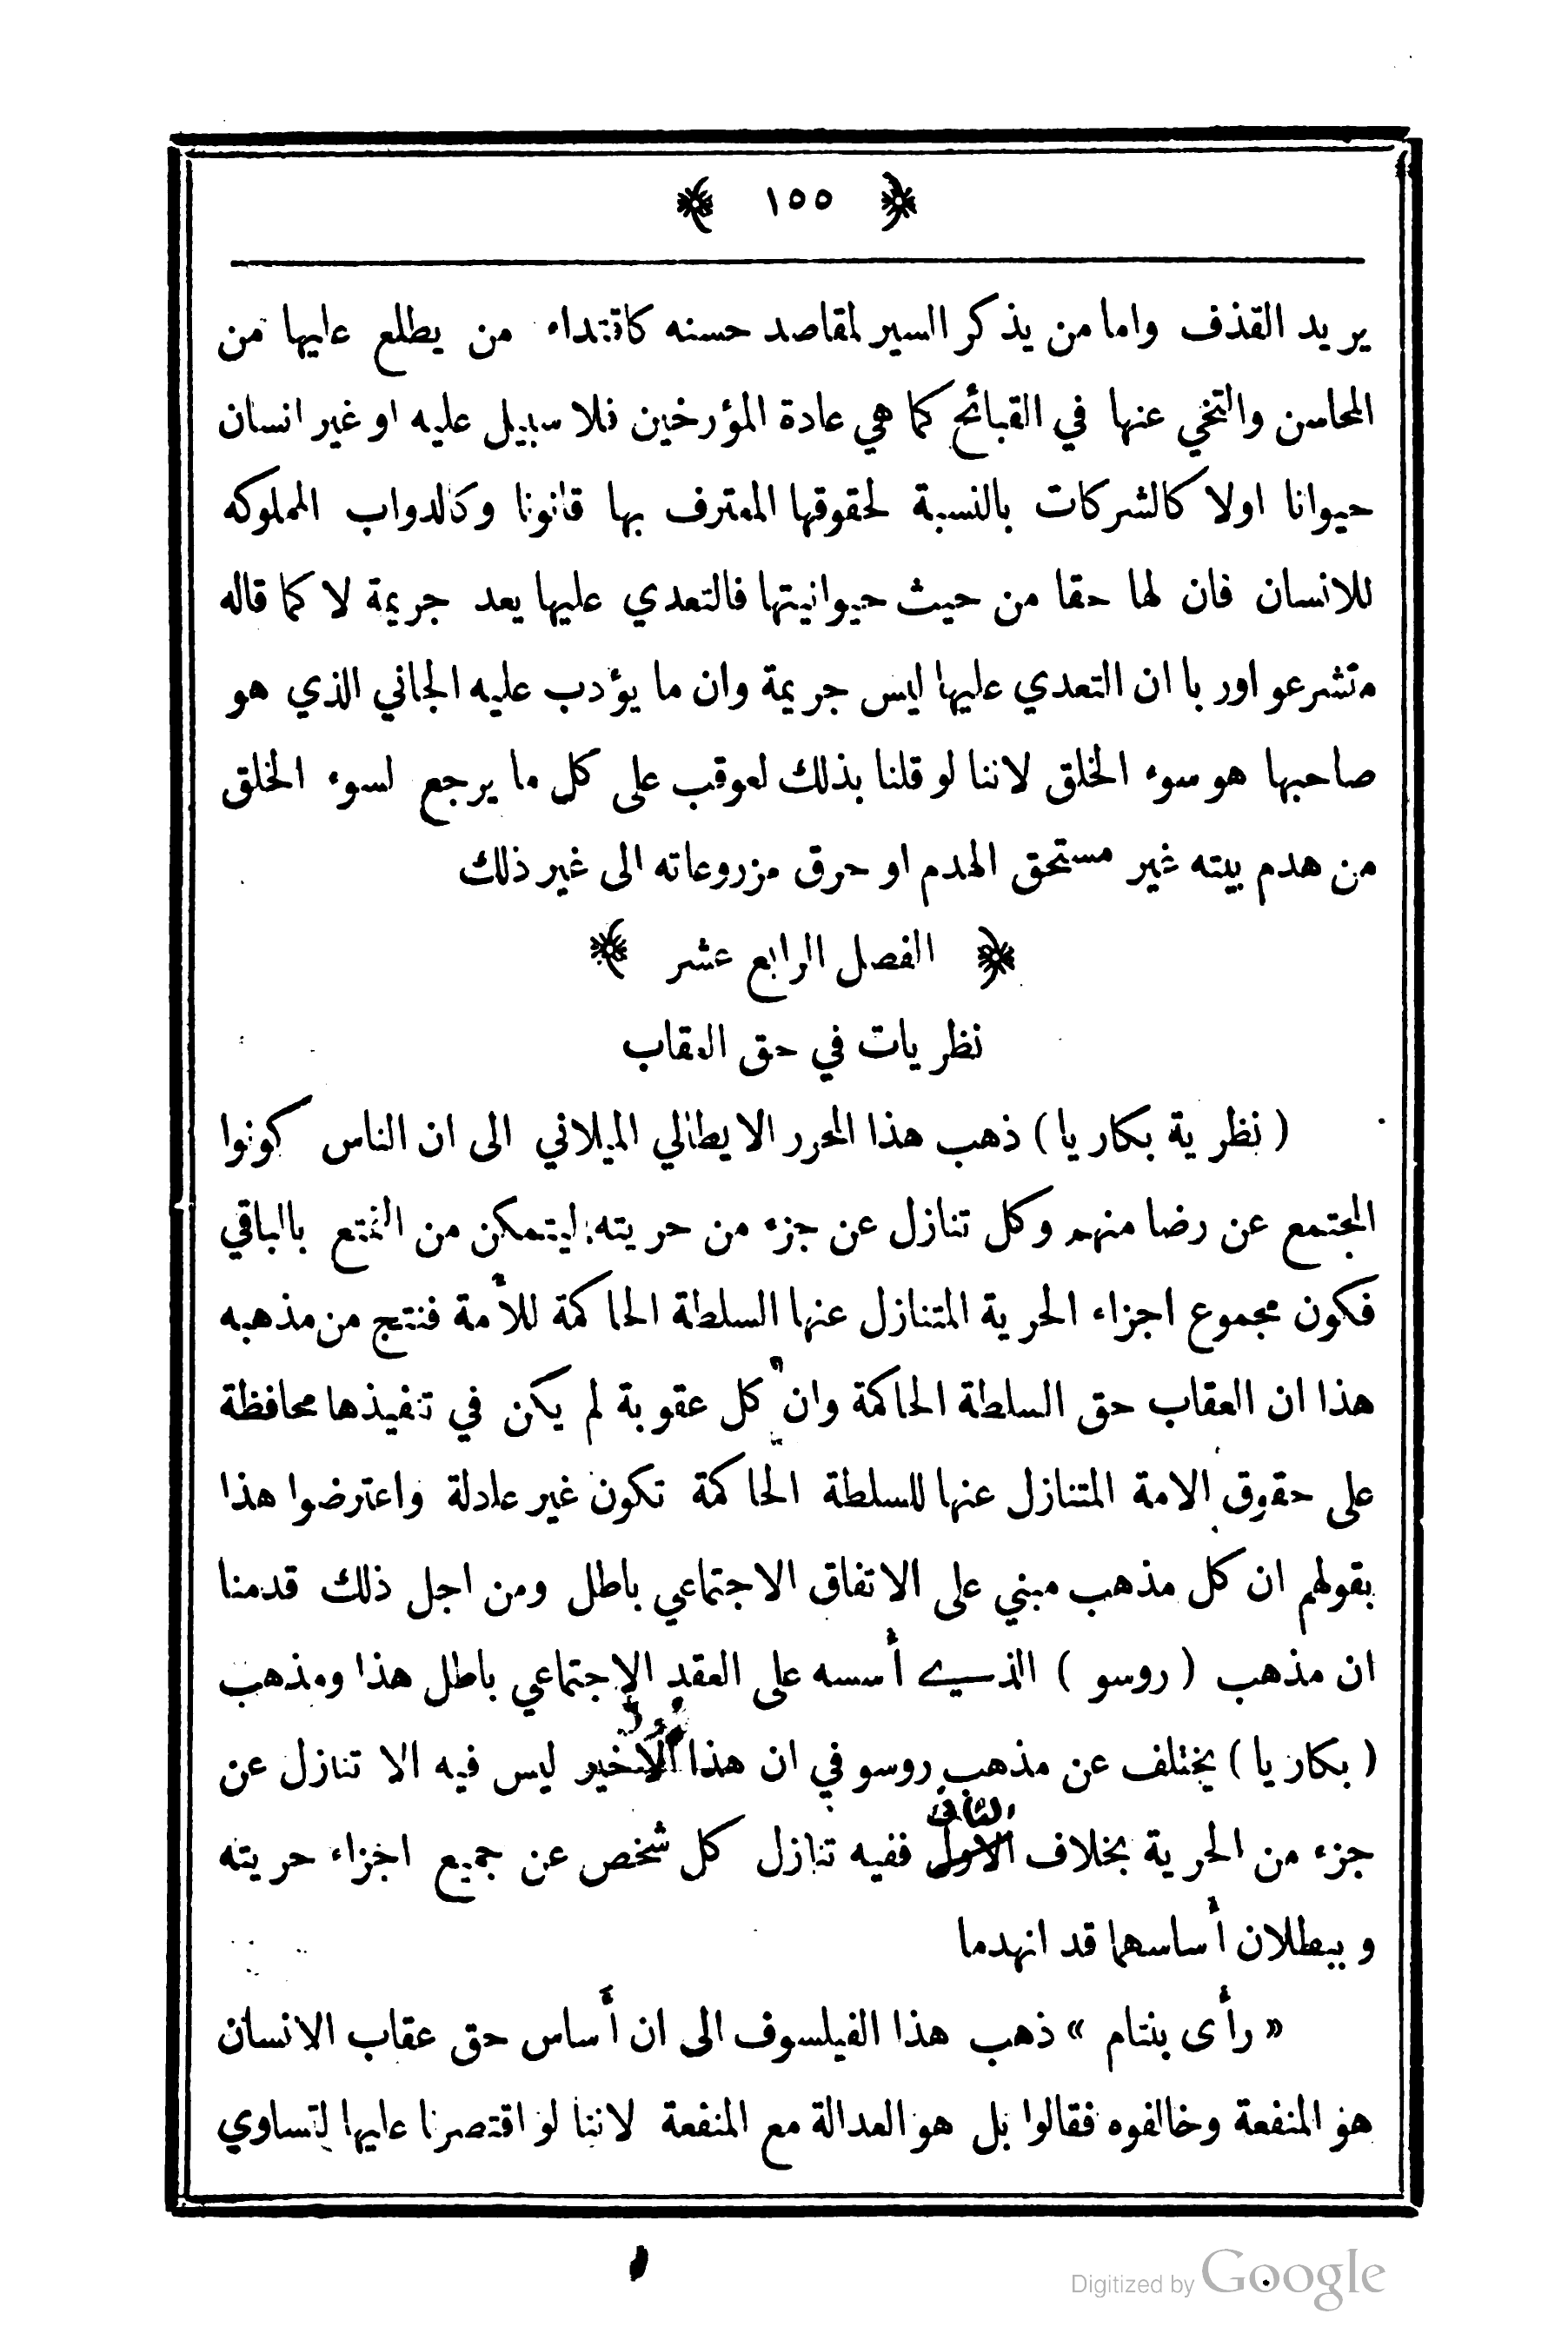 ﴿ ١٥٥ ﴾
يريد القذف واما من يذكر السير لمقاصد حسنه كاقتداء من يطلع عليها من
المحاسن والتخي عنها في القبائح كما هي عادة المؤرخين فلا سبيل عليه او غير انسان
حيوانا اولا كالشركات بالنسبة لحقوقها المعترف بها قانونا وكالدواب المملوكه
للانسان فان لها حقا من حيث حيوانيتها فالتعدي عليها يعد جريمة لا كما قاله
متشرعو اوربا ان التعدي عليها ليس جريمة وان ما يؤدب عليه الجاني الذي هو
صاحبها هو سوء الخلق لاننا لو قلنا بذلك لعوقب على كل ما يرجع لسوء الخلق
من هدم بيته غير مستحق الهدم او حرق مزروعاته الى غير ذلك
﴿ الفصل الرابع عشر ﴾
نظريات في حق العقاب
( نظرية بكاريا ) ذهب هذا المحرر الايطالي الميلاني الى ان الناس كونوا
المجتمع عن رضا منهم وكل تنازل عن جزء من حريته ليتمكن من التمتع بالباقي
فكون مجموع اجزاء الحرية المتنازل عنها السلطة الحاكمة للأمة فنتج من مذهبه
هذا ان العقاب حق السلطة الحاكمة وان كل عقوبة لم يكن في تنفيذها محافظة
على حقوق الامة المتنازل عنها للسلطة الحاكمة تكون غير عادلة واعترضوا هذا
بقولهم ان كل مذهب مبني على الاتفاق الاجتماعي باطل ومن اجل ذلك قدمنا
ان مذهب ( روسو ) الذي أسسه على العقد الاجتماعي باطل هذا ومذهب
( بكاريا ) يختلف عن مذهب روسو في ان هذا الاخير ليس فيه الا تنازل عن
الثاني
جزء من الحرية بخلاف الاول ففيه تنازل كل شخص عن جميع اجزاء حريته
وببطلان أساسهما قد انهدما
« رأى بنتام » ذهب هذا الفيلسوف الى ان أساس حق عقاب الانسان
هو المنفعة وخالفوه فقالوا بل هو العدالة مع المنفعة لاننا لو اقتصرنا عليها لتساوي
Digitized by Google